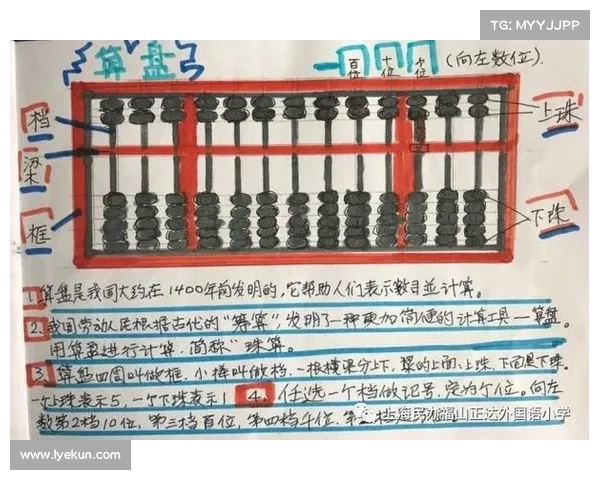 TG: MYYJJPP
算盘
百位 十位 个位 (向左数位).
档
梁
框
上珠
下珠
1、算盘是我国大约在1400年前发明的,它帮助人们表示数目并计算。
2、我国劳动人民根据古代的“筹算”,发明了一种更加简便的计算工具—算盘。
用算盘进行计算.简称“珠算。
3、算盘四周叫做框.小棒叫做档.一根横梁分上下,梁的上面:上珠.下面是下珠.
一个上珠表示5,一个下珠表示1 4、任选一个档做记号,定为个位。向左
数第2档10位,第三档百位,第四档千位、
上海民办福山正达外国语小学
www.lyekun.com